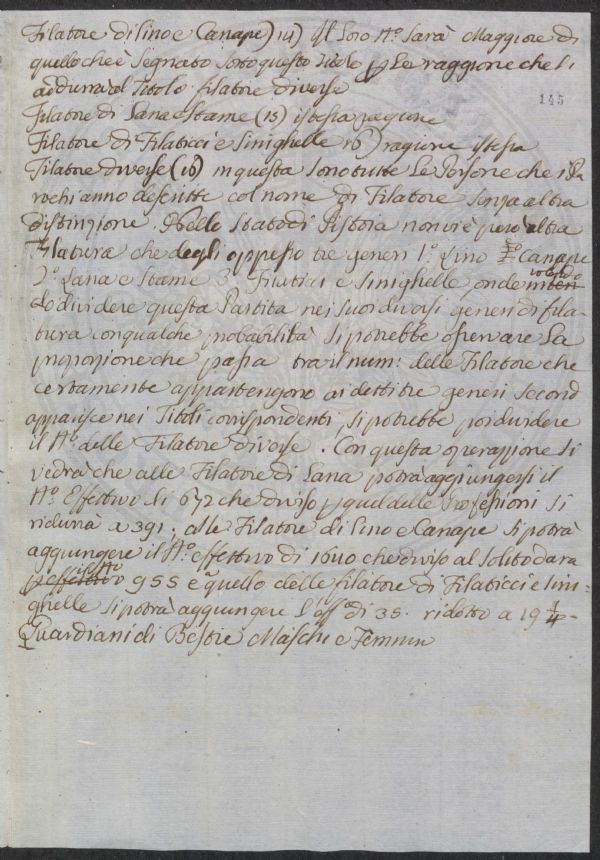 Filatore di lino e Canape) 14) Il Loro N.o Sarà Maggiore di
quello che è segnato sotto questo Titolo p Le raggione che si
addurrà al Titolo filatore diverse
145
Filatore di Lana e Stame (15) istessa ragione
Filatore di Filaticci e Sinighelle 16) ragione istessa
Filatore diverse (16) in questa sono tutte Le Persone che i Pa
rochi anno descritte col nome di Filatore senza altra
distinzione. Nello Stato di Pistoia non vi è però altra
Filatura che degli appresso tre generi 1.o Lino e Canape
2.o Lana e Stame 3. Filaticci e Sinighelle, onde volendo
do dividere questa Partita nei suoi diversi generi di fila-
tura con qualche probabilità si potrebbe osservare La
proporzione che passa tra il num: delle Filatore che
certamente appartengono ai detti tre generi second
apparisce nei Titoli corrispondenti, si potrebbe poi dividere
il N.o delle Filatore diverse. Con questa operazione si
vedrà che alle Filatore di Lana potrà aggiungersi il
N.o Effettivo di 672 che diviso p quel delle Professioni si
riduna a 391. alle Filatore di Lino e Canape si potrà
aggiungere il N.o effettivo di 1640 che diviso al Solito darà
955 e a quello delle filatore di Filaticci e Sini
ghelle si potrà aggiungere di 35. ridotto a 19 1/4-
Guardiani di Bestie Maschi e Femmin